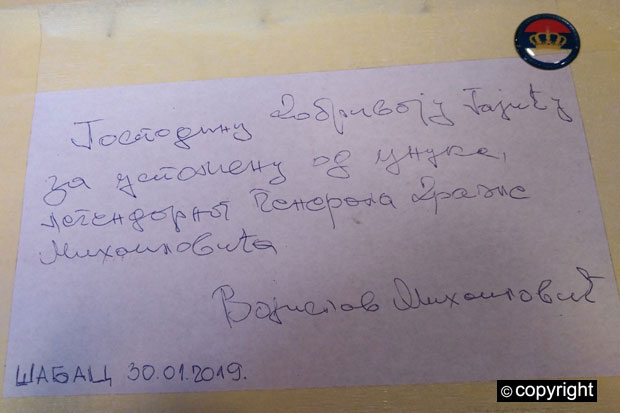 Господину Добривоју Гајићу
за успомену од унука,
легендарног Генерала Драже
Михаиловића
Војислав Михаиловић
ШАБАЦ 30.01.2019.
© copyright